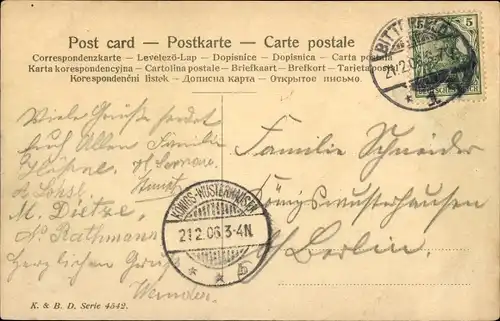 Post card — Postkarte — Carte postale
Correspondenzkarte — Levelező-Lap — Dopisnice — Dopisnica — Carta postala
Karta korespondencyjna — Cartolina postale — Briefkaart — Brefkort — Tarjeta postal
Korespondenční lístek — Дописна карта — Открытое письмо.
BITTERFELD
21.2.06
5
Viele Grüße sendet
Euch Allen Familie
M. Dietze,
Rathmann
Herzlichen Gruß
Familie Schneider
Königswusterhausen
b/Berlin.
KÖNIGS-WUSTERHAUSEN
21.2.06.3-4N.
* * b
K. & B. D. Serie 4542.